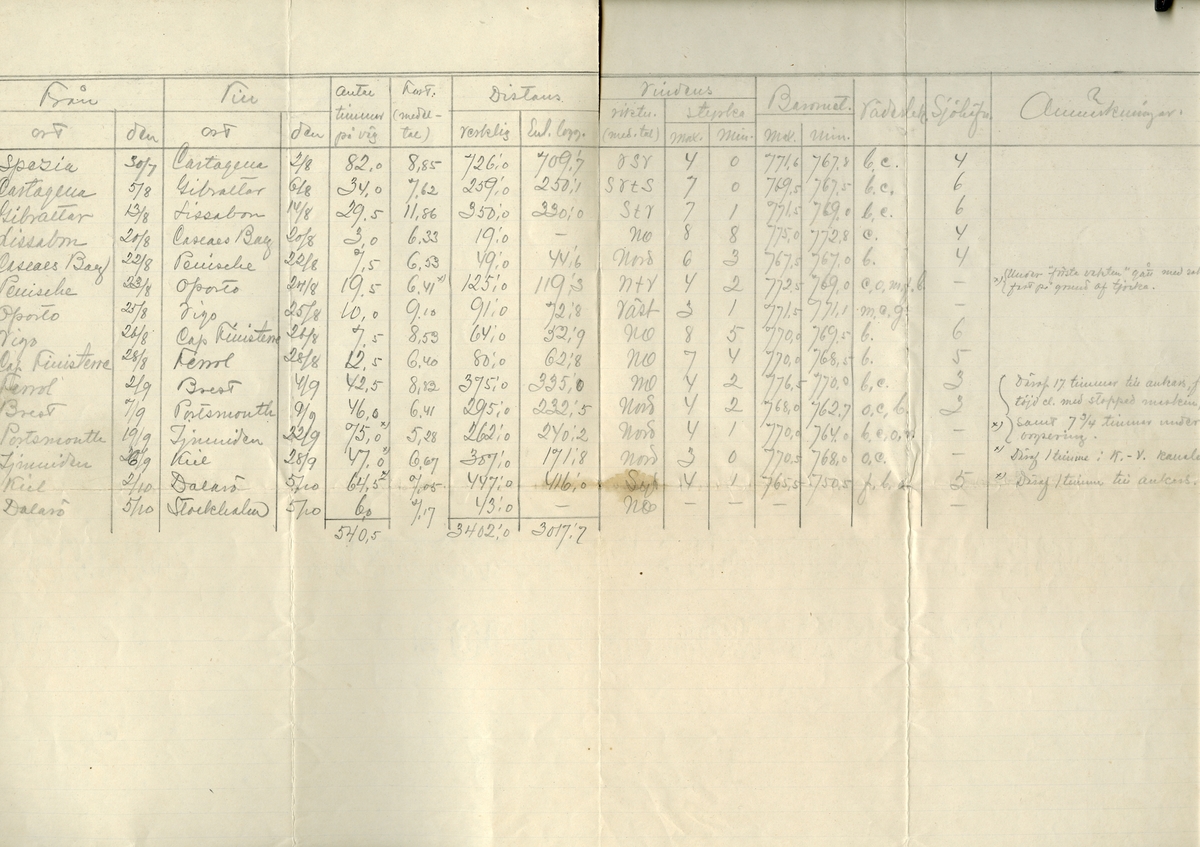 Från Till Antal timmar på väg Fart. (medeltal) Distans Vindens Baromet. Väderlek. Sjöhäfn. Anmärkningar.
ort den ort den verklig Enl. logg. riktn. (med.tal) styrka Max. Min. Max. Min.
Spezia 30/7 Cartagena 2/8 82,0 8,85 726,'0 709,'7 VSV 4 0 771,6 767,8 b,c. 4
Cartagena 5/8 Gibraltar 6/8 34,0 7,62 259,'0 250,'1 SVtS 7 0 769,5 767,5 b,c. 6
Gibraltar 13/8 Lissabon 14/8 29,5 11,86 350,'0 330,'0 StV 7 1 771,5 769,0 b,c. 6
Lissabon 20/8 Cascaes Bay 20/8 3,0 6,33 19,'0 — NO 8 8 775,0 772,8 c. 4
Cascaes Bay 22/8 Peniche 22/8 7,5 6,53 49,'0 44,'6 Nord 6 3 767,5 767,0 b. 4
Peniche 23/8 Oporto 24/8 19,5 6,41 *) 125,'0 119,'3 NtV 4 2 772,5 769,0 c,o,m,g,b —
*) Under "första vakten" gått med sakta fart på grund af tjocka.
Oporto 25/8 Vigo 25/8 10,0 9,10 91,'0 72,'8 Väst 3 1 771,5 771,1 m,c,g. —
Vigo 26/8 Cap Finisterre 26/8 7,5 8,53 64,'0 32,'9 NO 8 5 770,0 769,5 b. 6
Cap Finisterre 28/8 Ferrol 28/8 12,5 6,40 80,'0 62,'8 NO 7 4 770,0 768,5 b. 5
Ferrol 2/9 Brest 4/9 42,5 8,82 375,'0 335,'0 NO 4 2 776,5 770,0 b,c. 3
Brest 7/9 Portsmouth 9/9 46,0 6,41 295,'0 232,'5 Nord 4 2 768,0 762,7 o,c,b. 2
Portsmouth 19/9 Ijmuiden 22/9 75,0 *) 5,28 262,'0 240,'2 Nord 4 1 770,0 764,0 b,c,o, —
*) Däraf 17 timmar till ankars, med stoppad maskin, Samt 7 3/4 timmar under
Ijmuiden 26/9 Kiel 28/9 47,0 *) 6,67 387,'0 171,'8 Nord 3 0 770,5 768,0 o,c. —
*) Däraf 1 timme i K.-V. kanalen
Kiel 2/10 Dalarö 5/10 64,5 *) 7,05 447,'0 416,'0 4 1 765,5 750,5 5
*) Däraf 1 timme till ankars.
Dalarö 5/10 Stockholm 5/10 6,0 7,17 43,'0 — NO — — — —
540,5 3402,'0 3017,'7